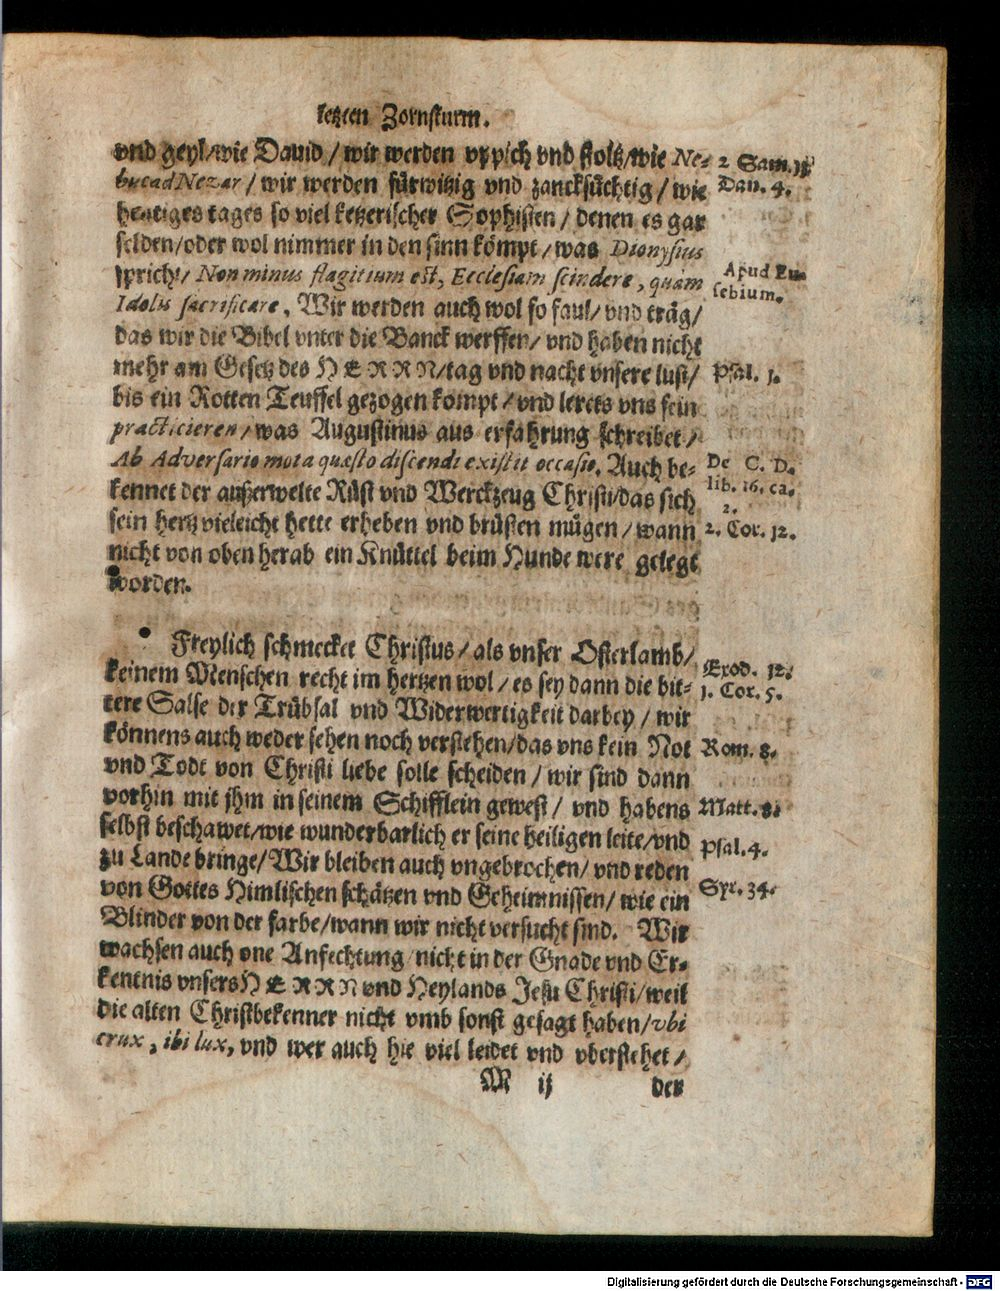 letzten Zornsturm.
vnd geyl/wie Dauid / wir werden vppich vnd stoltz/wie Ne-
bucadNezar / wir werden fürwitzig vnd zancksüchtig / wie
heutiges tages so viel ketzerischer Sophisten / denen es gar
selden/oder wol nimmer in den sinn kömpt / was Dionysius
spricht/ Non minus flagitium est, Ecclesiam scindere, quàm
Idolis sacrificare. Wir werden auch wol so faul/ vnd träg/
das wir die Bibel vnter die Banck werffen/ vnd haben nicht
mehr am Gesetz des HERRN/tag vnd nacht vnsere lust/
bis ein Rotten Teuffel gezogen kompt / vnd lerets vns fein
practicieren / was Augustinus aus erfahrung schreibet /
Ab Adversario mota quæstio discendi existit occasio. Auch be-
kennet der außerwelte Rüst vnd Werckzeug Christi/das sich
sein hertz vieleicht hette erheben vnd brüsten mügen / wann
nicht von oben herab ein Knüttel beim Hunde were gelegt
worden.
2 Sam.
Dan. 4.
Apud Eu-
sebium.
Psal. 1.
De C. D.
lib. 16. ca.
2.
2. Cor. 12.
Freylich schmecket Christus / als vnser Osterlamb/
keinem Menschen recht im hertzen wol / es sey dann die bit-
tere Salse der Trübsal vnd Widerwertigkeit darbey / wir
könnens auch weder sehen noch verstehen/das vns kein Not
vnd Todt von Christi liebe solle scheiden / wir sind dann
vorhin mit jhm in seinem Schifflein gewest / vnd habens
selbst beschawet/wie wunderbarlich er seine heiligen leite/vnd
zu Lande bringe/ Wir bleiben auch vngebrochen/ vnd reden
von Gottes Himlischen schätzen vnd Geheimnissen/ wie ein
Blinder von der farbe/wann wir nicht versucht sind. Wir
wachsen auch one Anfechtung nicht in der Gnade vnd Er-
kentnis vnsers HERRN vnd Heylands Jesu Christi/weil
die alten Christbekenner nicht vmb sonst gesagt haben/vbi
crux, ibi lux, vnd wer auch hie viel leidet vnd vberstehet /
Exod. 12.
1. Cor. 5.
Rom. 8.
Matt. 8.
Psal. 4.
Syr. 34.
M ij der
Digitalisierung gefördert durch die Deutsche Forschungsgemeinschaft - DFG